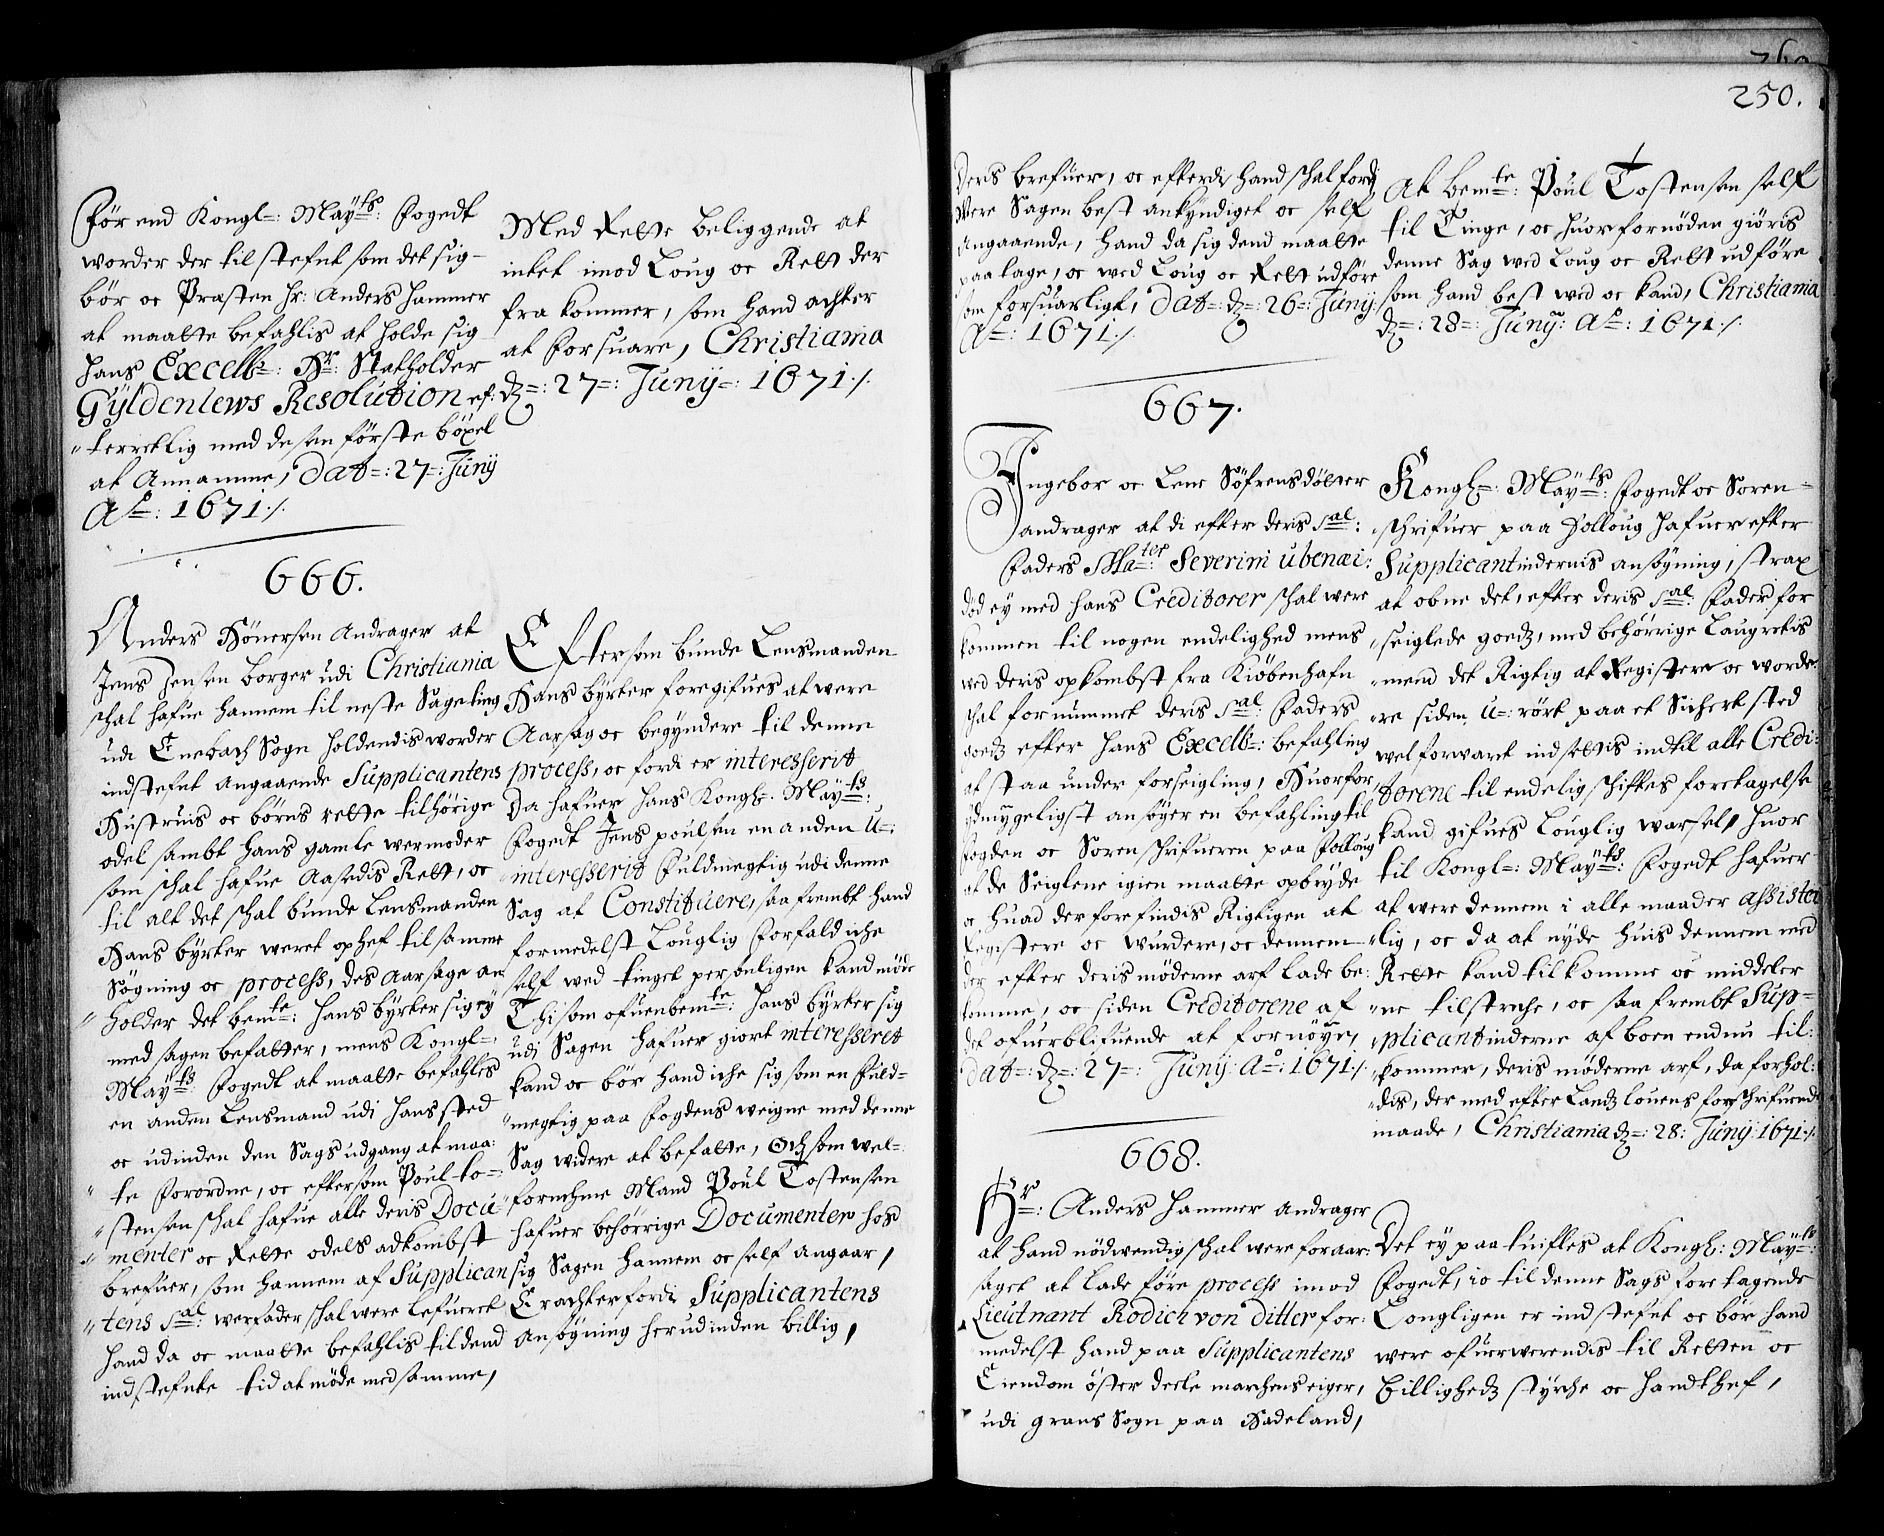 Før end Kongl: May:ts Fogedt
worder der til stefnt som det sig
bør oc Præsten Hr: Anders Hammer
at maatte befahlis at holde sig
Hans Excell: Hr: Statholder
Gyldenlews Resolution ef:
terretlig med desen første böxel
at Annamme, Dat: 27: Junij
Ao: 1671./.
Med Rette beliggende at
intet imod Loug oc Rett der
fra kommer, som hand achter
at forsuare, Christiania
dz: 27: Junij: 1671./.
666.
Anders Hönersen Andrager at
Jens Jensen borger udi Christiania
schal hafue hannem til neste Sageting
udi Enebach Sogn holdendis worder
indstefnt Angaaende Supplicantens
Hustruis oc börns rette tilhörige
odel sambt hans gamle wermoder
som schal hafue Aasedis Rett, oc
til alt det schal bunde Lensmanden
Hans byrker weret ophef til samme
Søgning oc process, des Aarsage an
holder det bemte: Hans byrker sig ey
med sagen befatter, mens Kongl:
May:ts Fogedt at maatte befahles
en anden Lensmand udi hans sted
oc udinden den Sags udgang at maa:
te forordne, oc eftersom Poul to=
stensen schal hafue alle deris Docu
menter oc Rette odels adkombst
brefuer, som hannem af Supplican
tens Sal: werfader schal were lefueret
hand da oc maatte befahlis til dend
indstefnte tid at möde med samme,
Eftersom bunde Lensmanden
Hans byrker foregifues at were
Aarsag oc begyndere til denne
process, oc fordi er interesserit
Da hafuer Hans Kongl: May:ts:
Fogedt Jens poulsen en anden U:
interesserit Fuldmegtig udi denne
Sag at Constituere, saa frembt hand
formedelst Louglig forfald iche
self wed tinget personligen kand möde
Thi som ofuenbemte: Hans byrker sig
udi Sagen hafuer giort interesseret
kand oc bör hand iche sig som en Fuld=
megtig paa Fogdens weigne med denne
Sag widere at befatte, Och som wel=
fornehme Mand Poul Tostensen
hafuer behörrige Documenter hos
sig Sagen hannem oc self angaar,
Erachter fordi Supplicantens
Ansögning herudinden billig,
250.
Deris brefuer, oc efterdi hand schal fordj
Were Sagen best ankyndiget oc self
Angaaende, hand da sig dend maatte
paa tage, oc wed Loug oc Rett udföre
som forsuarligt, Dat: dz: 26: Junij
Ao: 1671./.
At bemte: Poul Tostensen self
til Tinge, oc huor fornöden giöris
denne Sag wed Loug oc Rett udföre
som hand best wed oc kand, Christiania
dz: 28: Junij: Ao: 1671./.
667.
Ingebor oc Lene Söfrensdötter
andrager at di efter deris Sal:
Faders Mater: Severini ubenæi:
död ey med hans Creditorer schal were
kommen til nogen endelighed mens
wed deris opkombst fra Kiöbenhafn
schal fornummet deris Sal: Faders
goedz efter Hans Excell: befahling
at staa under forseigling, Huorfor
ydmygeligst ansöger en befahling til
Fogden oc Sorenschrifueren paa Folloug
at de Seiglene igien maatte opbryde
oc huad der forefindis Rigtigen at
Registere oc wurdere, oc dennem
der efter deris möderne arf lade be:
komme, oc siden Creditorene af
det ofuerblifuende at fornöye,
Dat: dz: 27: Junij: Ao: 1671./.
Kongl: May:ts: Fogedt oc Soren=
schrifuer paa Folloug hafuer efter
Supplicantindernis ansögning, strax
at obne det, efter deris Sal: Fader for
seiglede goedz, med behörrige Laugrettis
mend det Rigtig at Registere oc worde
re siden U: rört paa et Sichert sted
wel forwart indsettis indtil alle Credi:
torene til endelig schiftes foretagelse
kand gifues Louglig warsel, Huor
til Kongl: May:ts: Fogedt hafuer
at were dennem i alle maader Assister
lig, oc da at nyde huis dennem med
Rette kand tilkomme oc middeler
ne tilstreche, oc saa frembt Supp=
plicantinderne af boen endnu til:
kommer, deris möderne arf, da forhol:
dis, der med efter Landz louens forschrifuend
maade, Christiania dz: 28: Junij: 1671./.
668.
Hr: Anders Hammer Andrager
at hand nödwendig schal were foraar:
saget at lade före process imod
Lieutnant Rodich von Ditler for:
medelst hand paa Supplicantens
Eiendom öster deele marchens eiger,
udi grans Sogn paa Hadeland,
Det ey paa tuifles at Kongl: May:ts:
Fogedt, io til denne Sags foretagende
Longligen er indstefnt oc bör hand
were ofuerwerendis til Retten oc
billighedz styrche oc handthef,